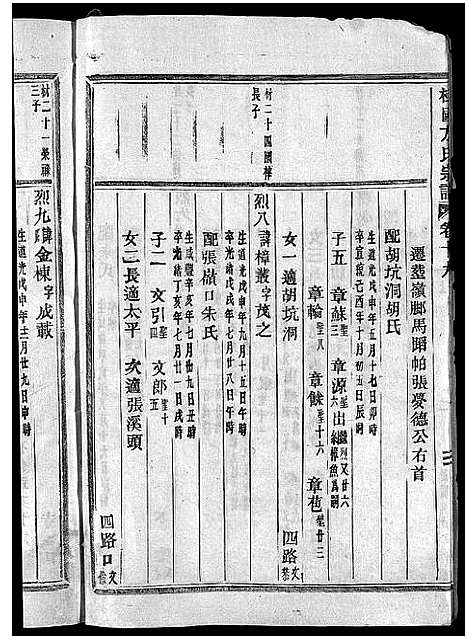 方氏宗譜 卷十九
三
配胡坑洞胡氏
生道光戊申年五月十七日卯時
卒宣統己酉年十月初五日辰時
子五 章蘇 聖三 章源 聖六 出繼
章輪 聖八 章餘 聖十六 章苞 聖廿三
女一 適胡坑洞
四路文
材二十四國樟
長子
烈八 諱樟叢 字茂之
生道光戊申年九月十五日午時
卒光緒戊戌年七月廿八日午時
配張嶺口朱氏
生咸豐辛亥年七月廿九日丑時
卒光緒丁亥年七月廿一日戌時
子二 文引 聖四 文郎 聖十五
女二 長適太平 次適張溪頭
四路口 文
材二十一榮祿
三子
烈九 諱金棟 字成戴
生道光戊申年十二月廿九日申時